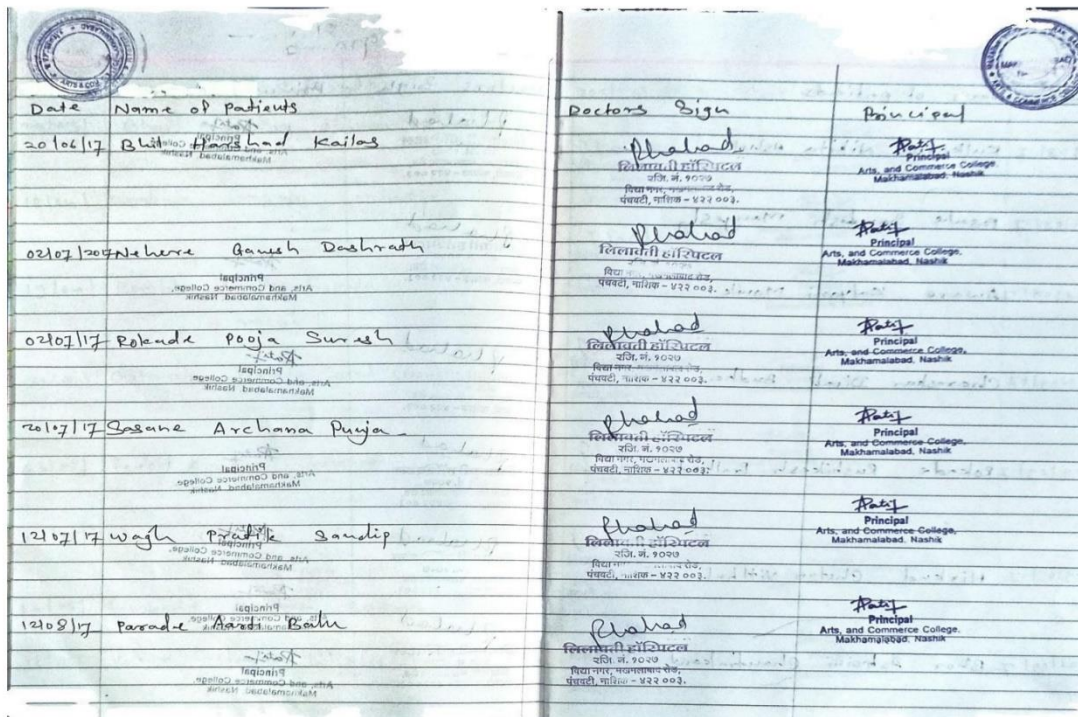 Date Name of patients Doctors Sign Principal
20/06/17 Harshad Kailas
लिलावती हॉस्पिटल
रजि. नं. १०२७
विद्या नगर,
पंचवटी, नाशिक - ४२२ ००३.
Principal
Arts, and Commerce College,
Makhamalabad, Nashik
02/07/20 Nehere Ganesh Dashrath
लिलावती हॉस्पिटल
पंचवटी, नाशिक - ४२२ ००३.
Principal
Arts, and Commerce College,
Makhamalabad, Nashik
02/07/17 Rokade Pooja Suresh
लिलावती हॉस्पिटल
रजि. नं. १०२७
विद्या नगर,
पंचवटी, नाशिक - ४२२ ००३.
Principal
Arts, and Commerce College,
Makhamalabad, Nashik
20/07/17 Sasane Archana Punja
लिलावती हॉस्पिटल
रजि. नं. १०२७
विद्या नगर,
पंचवटी, नाशिक - ४२२ ००३.
Principal
Arts, and Commerce College,
Makhamalabad, Nashik
12/07/17 Wagh Pratik Sandip
हॉस्पिटल
रजि. नं. १०२७
पंचवटी, नाशिक - ४२२ ००३.
Principal
Arts, and Commerce College,
Makhamalabad, Nashik
12/08/17 Parade
लिलावती हॉस्पिटल
रजि. नं. १०२७
विद्या नगर, मखमलाबाद रोड,
पंचवटी, नाशिक - ४२२ ००३.
Principal
Arts, and Commerce College,
Makhamalabad, Nashik